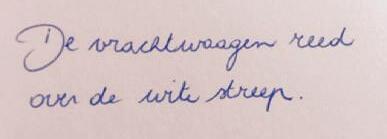 De vrachtwaagen reed
over de wite streep.